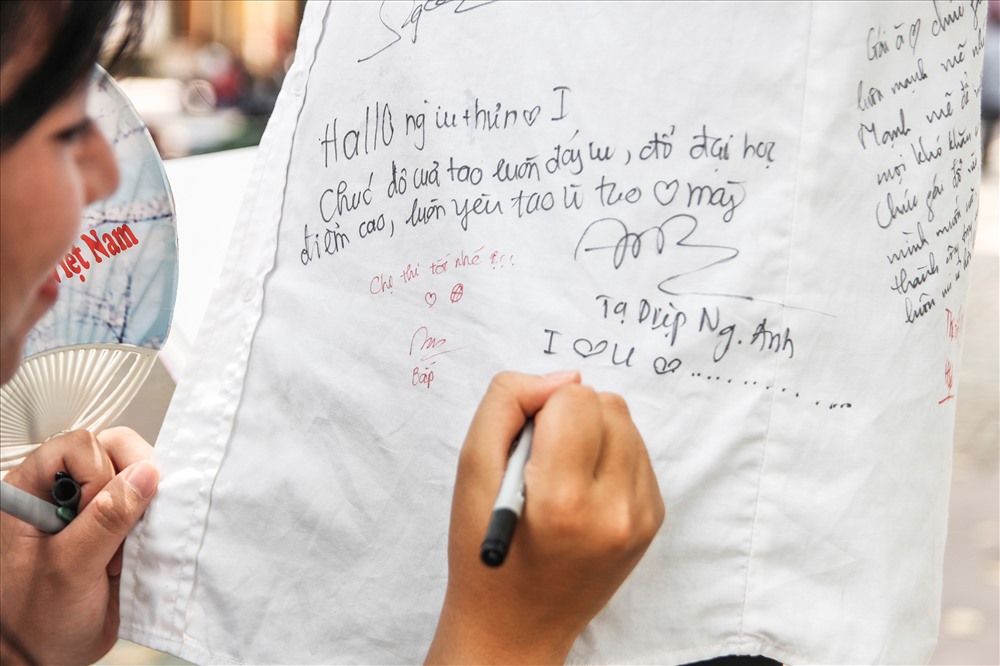 Việt Nam
Hallo ng iu thưn ♡ I
Chúc đô cuả tao luôn đáy iu, đỗ đại học
điểm cao, luôn yêu tao vì tao ♡ mày
Tạ Diệp Ng. Anh
I ♡ U ♡ ..............
Chợ thi tốt nhé !!!
♡
Bắp
Gái à ♡ chúc
luôn mạnh mẽ
Mạnh mẽ để
mọi khó khăn
Chúc gái đỗ
mình muốn
thành công
luôn